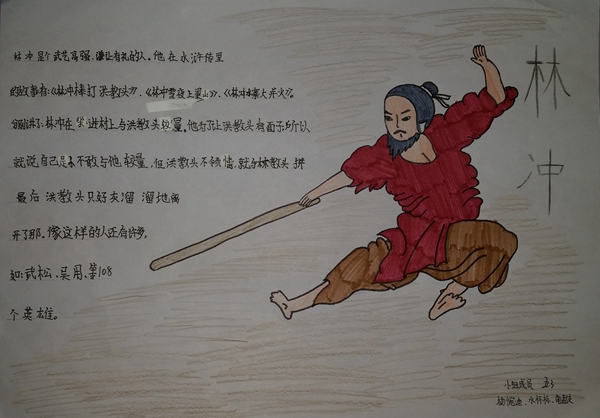 林冲是个武艺高强、谦让有礼的人。他在水浒传里
的故事有:《林冲棒打洪教头》、《林冲雪夜上梁山》、《林冲水寨大并火》。
分别讲了林冲在柴进村上与洪教头较量,他为了让洪教头有面子,所以
就说自己是不敢与他较量,但洪教头不领情,就与林教头拼
最后洪教头只好灰溜溜地离
开了那。像这样的人还有许多,
如:武松、吴用、等108
个英雄。
林
冲
小组成员